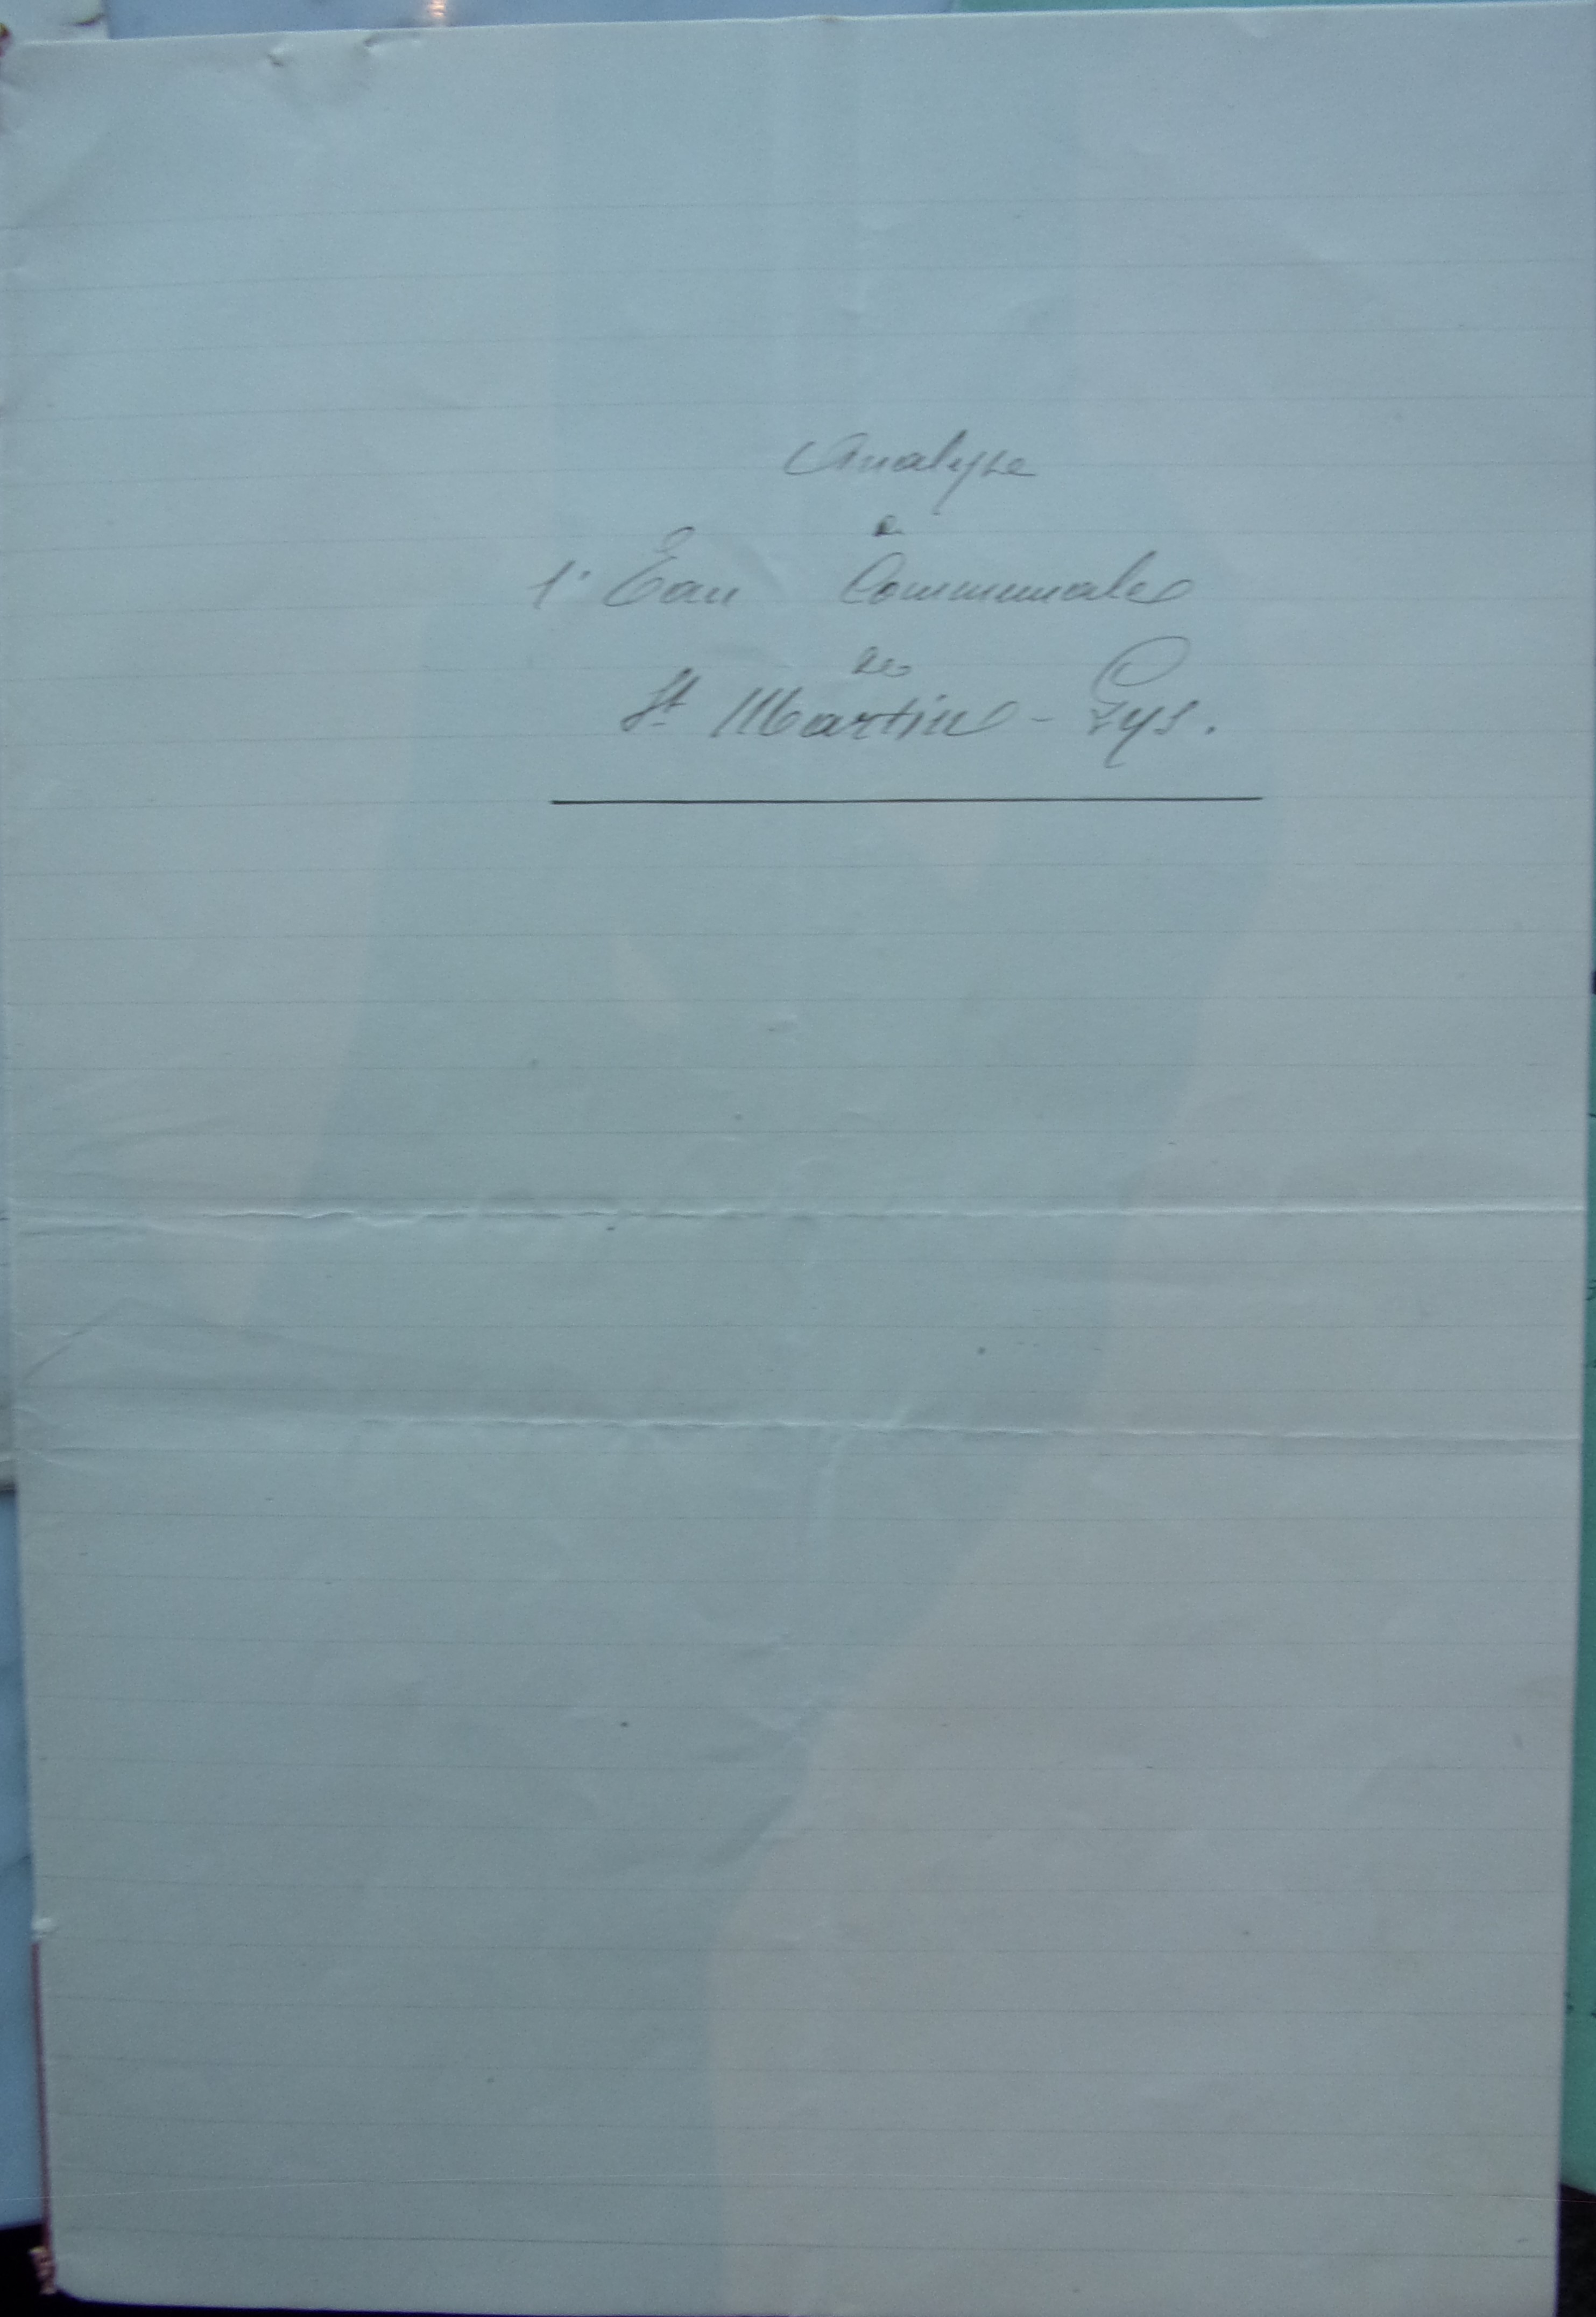 Analyse
de
l'Eau Communale
de
St Martin-Lys.